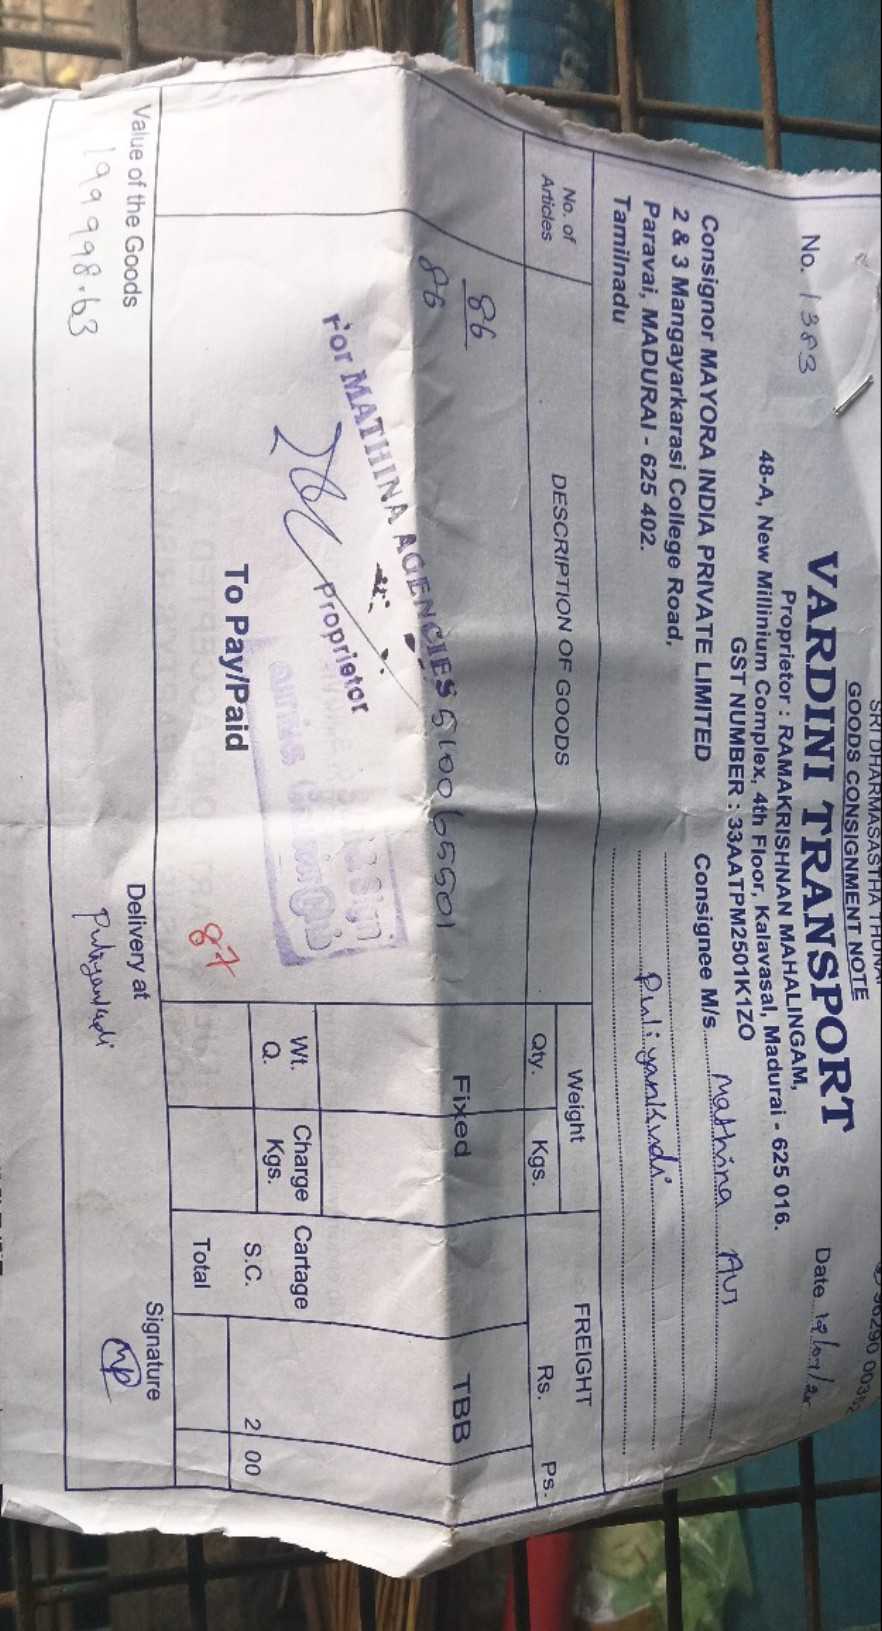 SRI DHARMASASTHA THUNAI
GOODS CONSIGNMENT NOTE
VARDINI TRANSPORT
Proprietor : RAMAKRISHNAN MAHALINGAM,
48-A, New Millinium Complex, 4th Floor, Kalavasal, Madurai - 625 016.
GST NUMBER : 33AATPM2501K1ZO
No. 1383
Date
Consignor MAYORA INDIA PRIVATE LIMITED
2 & 3 Mangayarkarasi College Road,
Paravai, MADURAI - 625 402.
Tamilnadu
Consignee M/s Mathina
Puliyankudi
No. of Articles
DESCRIPTION OF GOODS
Weight
Qty. Kgs.
FREIGHT
Rs. Ps.
86
86
510065501
Fixed
TBB
For MATHINA AGENCIES
Proprietor
Wt. Q.
Charge Kgs.
Cartage
S.C. 2 00
Total
To Pay/Paid
87
Value of the Goods
199998.63
Delivery at
Puliyankudi
Signature